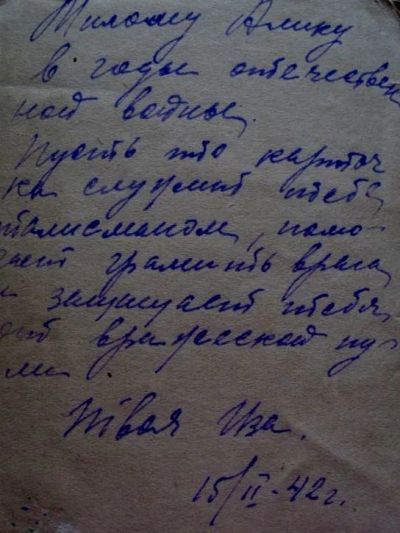 Милому Алику
в годы отечествен
ной войны.
Пусть эта карточ
ка служит тебе
талисманом, помо
гает громить врага
и защищает тебя
от вражеской пу-
ли.
Твоя Иза.
15/II-42 г.